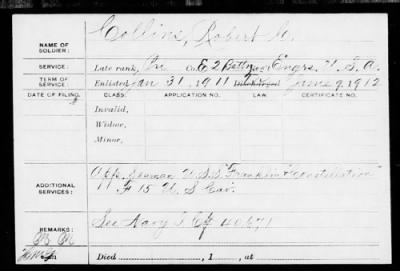 Collins, Robert C.
NAME OF SOLDIER:
SERVICE: Late rank, Pvt Co. E, 2 Battn Engrs. U. S. A.
TERM OF SERVICE: Enlisted Jan 31, 1911 Discharged June 9, 1912
DATE OF FILING. CLASS. APPLICATION NO. LAW. CERTIFICATE NO.
Invalid,
Widow,
Minor,
ADDITIONAL SERVICES: App. Seaman U.S.S. "Franklin" "Constellation"
F 15 U. S. Cav.
REMARKS: See Navy I. Ctf 40671
Died , 1 , at